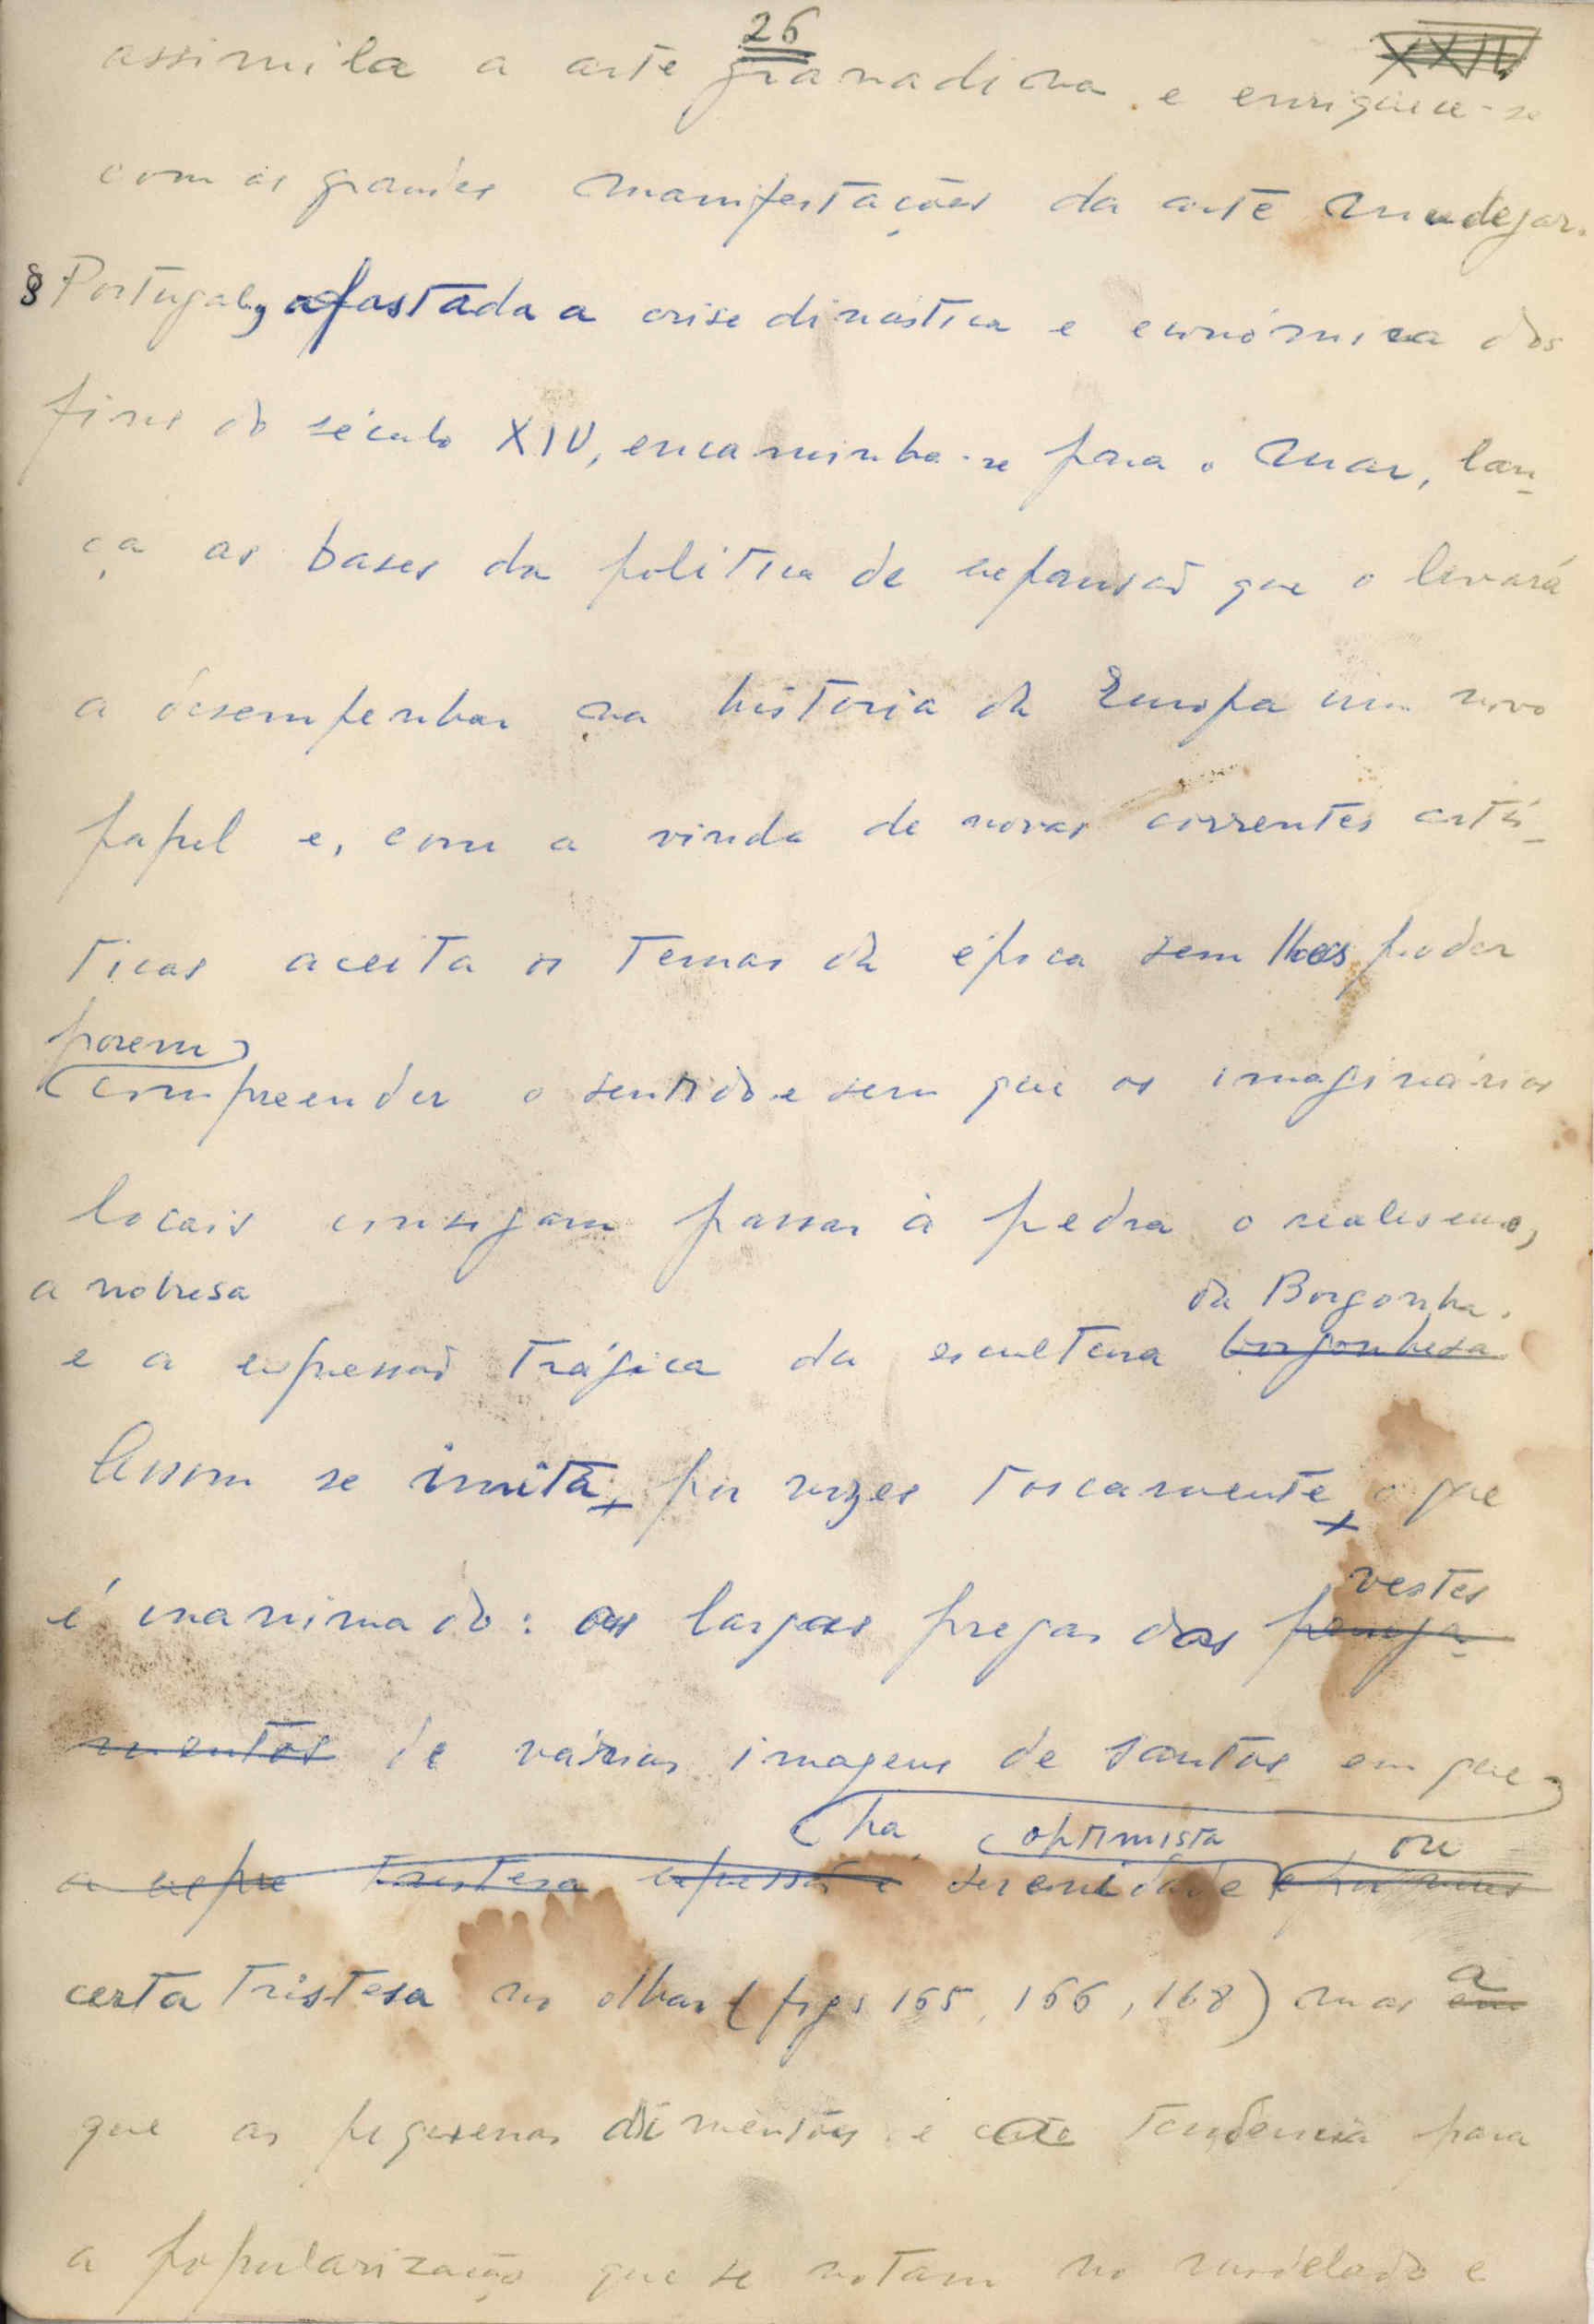 26
XXIV
assimila a arte granadina e enriquece-se
com as grandes manifestações da arte mudejar.
§ Portugal, afastada a crise dinástica e económica dos
fins do século XIV, encaminha-se para o mar, lan-
ça as bases da politica de expansão que o levará
a desempenhar na historia da Europa um novo
papel e, com a vinda de novas correntes artis-
ticas aceita os temas da época sem lhes poder
porem
compreender o sentido e sem que os imaginários
locais consigam passar à pedra o realismo,
a nobresa da Borgonha.
e a expressão trágica da escultura borgonhesa
Assim se imita, por vezes toscamente, o que
é inanimado: as largas pregas das
vestes
paneja-
mentos de várias imagens de santos em que
ha optimista ou
a expre tristesa expressão e serenidade e por vezes
certa tristesa no olhar (figs 165, 166, 168) mas a
em
que as pequenas dimensões e certa tendencia para
a popularização que se notam no modelado e